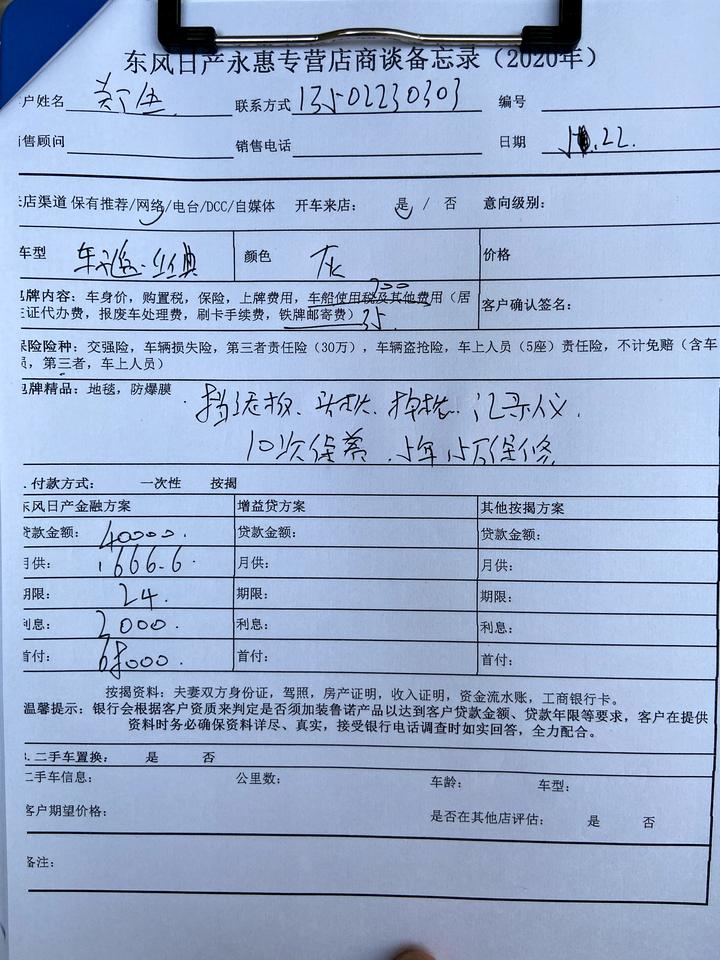 东风日产永惠专营店商谈备忘录（2020年）
户姓名 联系方式 13502230303 编号
售顾问 销售电话 日期 .22.
店渠道 保有推荐/网络/电台/DCC/自媒体 开车来店： 是 / 否 意向级别：
车型 经典 颜色 灰 价格
包牌内容：车身价，购置税，保险，上牌费用，车船使用税及其他费用（居
住证代办费，报废车处理费，刷卡手续费，铁牌邮寄费） 客户确认签名：
保险险种：交强险，车辆损失险，第三者责任险（30万），车辆盗抢险，车上人员（5座）责任险，不计免赔（含车
员，第三者，车上人员）
包牌精品：地毯，防爆膜 挡泥板、头枕、抱枕、记录仪.
10次保养.5年15万保修
.付款方式： 一次性 按揭
东风日产金融方案 增益贷方案 其他按揭方案
贷款金额： 40000. 贷款金额： 贷款金额：
月供： 1666.6 月供： 月供：
期限： 24. 期限： 期限：
利息： 2000. 利息： 利息：
首付： 68000. 首付： 首付：
按揭资料：夫妻双方身份证，驾照，房产证明，收入证明，资金流水账，工商银行卡。
温馨提示：银行会根据客户资质来判定是否须加装鲁诺产品以达到客户贷款金额、贷款年限等要求，客户在提供
资料时务必确保资料详尽、真实，接受银行电话调查时如实回答，全力配合。
.二手车置换： 是 否
二手车信息： 公里数： 车龄： 车型：
客户期望价格： 是否在其他店评估： 是 否
备注：